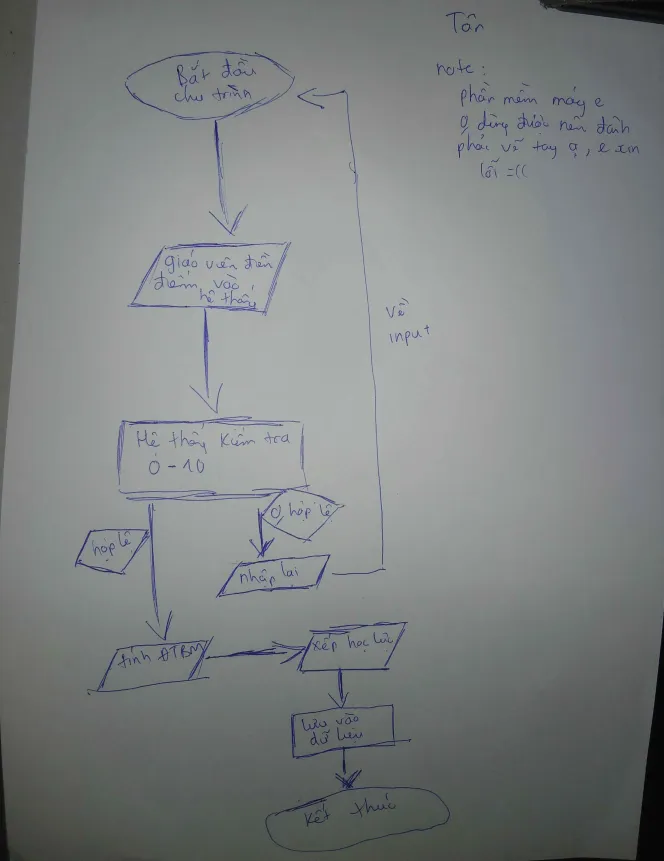 Tân
note:
phần mềm máy e
0 dùng được nên đành
phải vẽ tay ạ, e xin
lỗi =((
Bắt đầu
chu trình
giáo viên điền
điểm vào
hệ thống
về
input
Hệ thống kiểm tra
0 - 10
hợp lệ
0 hợp lệ
nhập lại
tính ĐTBM
xếp học lực
lưu vào
dữ liệu
Kết thúc